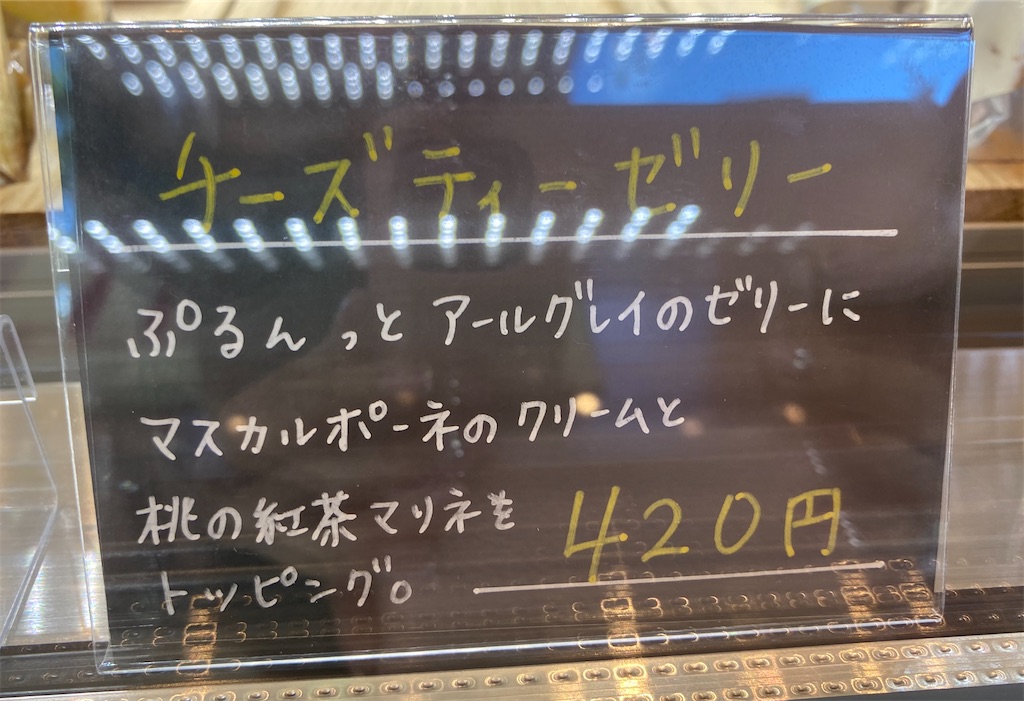 チーズティーゼリー
ぷるんっとアールグレイのゼリーに
マスカルポーネのクリームと
桃の紅茶マリネを
トッピング。
420円